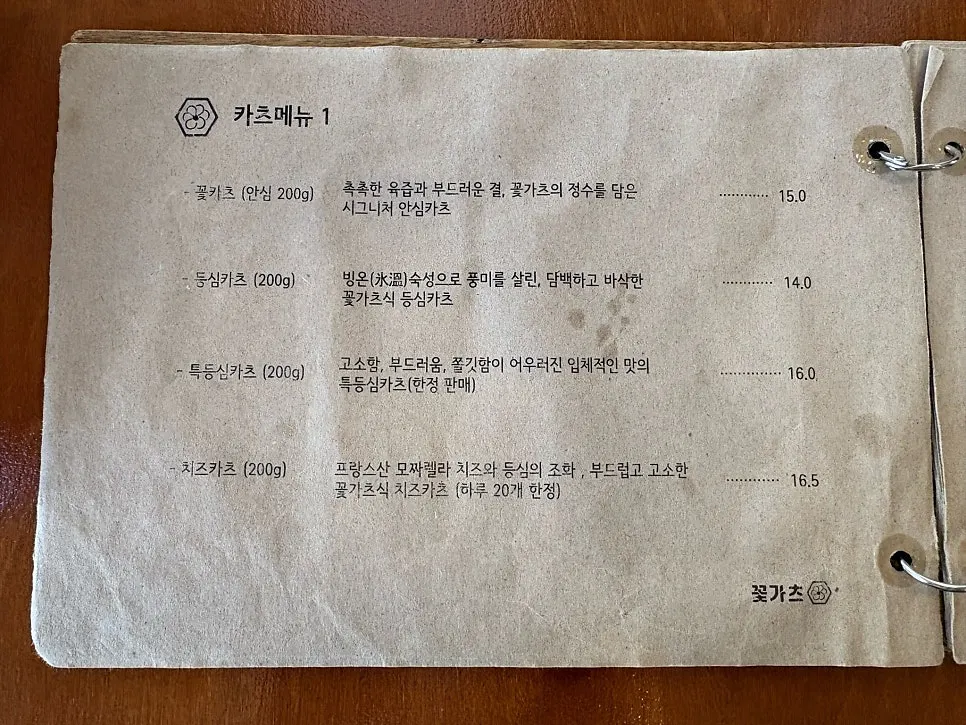 카츠메뉴 1
- 꽃카츠 (안심 200g) 촉촉한 육즙과 부드러운 결, 꽃가츠의 정수를 담은 ············ 15.0
시그니처 안심카츠
- 등심카츠 (200g) 빙온(氷溫)숙성으로 풍미를 살린, 담백하고 바삭한 ············ 14.0
꽃가츠식 등심카츠
- 특등심카츠 (200g) 고소함, 부드러움, 쫄깃함이 어우러진 입체적인 맛의 ·············· 16.0
특등심카츠(한정 판매)
- 치즈카츠 (200g) 프랑스산 모짜렐라 치즈와 등심의 조화 , 부드럽고 고소한 ············ 16.5
꽃가츠식 치즈카츠 (하루 20개 한정)
꽃가츠